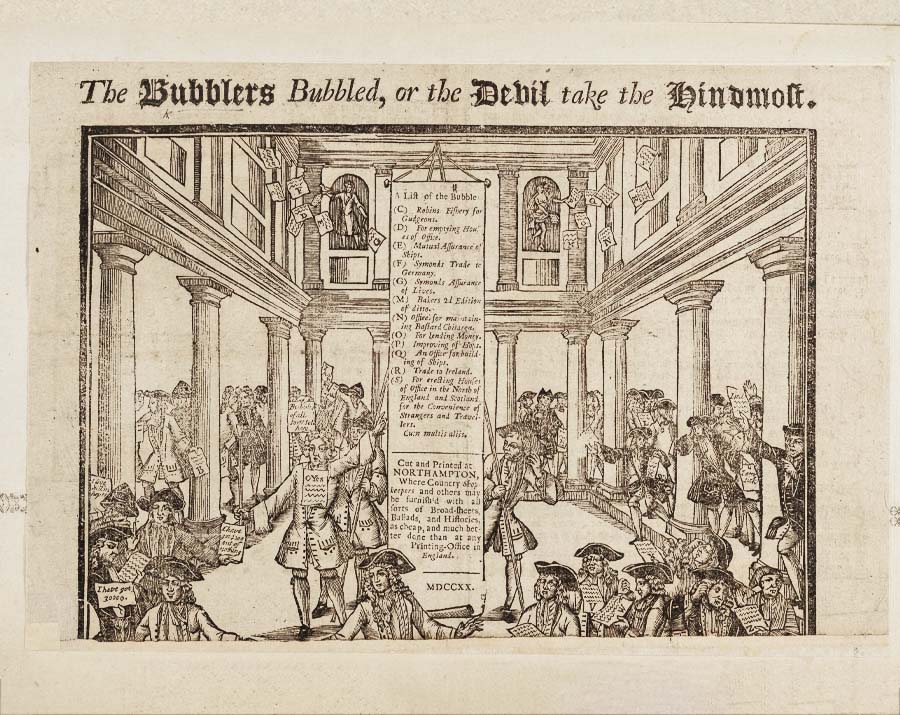 The Bubblers Bubbled, or the Devil take the Hindmoſt.
A Liſt of the Bubble
(C) Robins Fiſhery for
Gudgeons.
(D) For emptying Hou
es of Office.
(E) Mutual Aſſurance of
Ships.
(F) Symonds Trade to
Germany.
(G) Symonds Aſſurance
of Lives.
(M) Bakers 2d Edition
of ditto.
(N) Office for maintain-
ing Baſtard Children.
(O) For lending Money.
(P) Improving of Hops.
(Q) An Office for build-
ing of Ships.
(R) Trade to Ireland.
(S) For erecting Houſes
of Office in the North of
England and Scotland
for the Convenience of
Strangers and Travel-
lers.
Cum multis aliis.
Cut and Printed at
NORTHAMPTON,
Where Country Shop
keepers and others may
be furniſh'd with all
ſorts of Broad-ſheets,
Ballads, and Hiſtories,
as cheap, and much bet-
ter done than at any
Printing-Office in
England.
MDCCXX.
O Yes
I have got
30000.